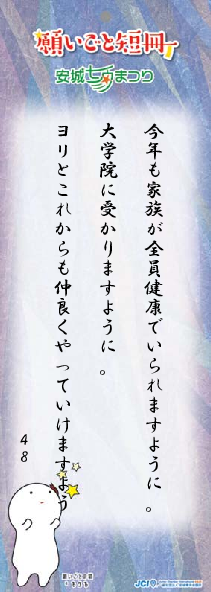 願いごと短冊
安城七夕まつり
今年も家族が全員健康でいられますように。
大学院に受かりますように。
ヨリとこれからも仲良くやっていけますよう
48
願いごと短冊
JCI